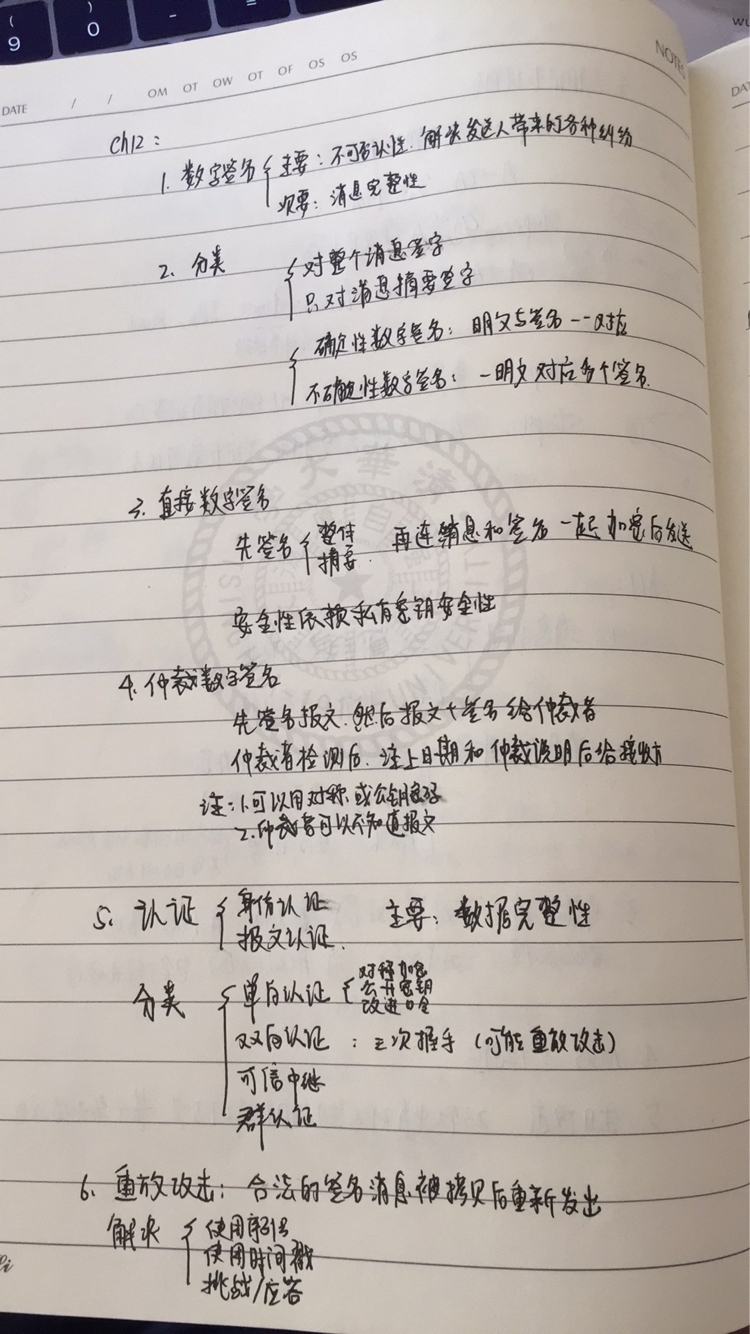 ( 9
) 0
-
=
DATE / / OM OT OW OT OF OS OS
NOTES
Ch12：
1. 数字签名 { 主要：不可否认性. 解决发送人带来的各种纠纷
次要：消息完整性
2. 分类 { 对整个消息签字
只对消息摘要签字
{ 确定性数字签名：明文与签名一一对应
不确定性数字签名：一明文对应多个签名.
3. 直接数字签名
先签名 { 整体
摘要
再连消息和签名一起加密后发送
安全性依赖私有密钥安全性
4. 仲裁数字签名
先签名报文. 然后报文+签名给仲裁者
仲裁者检测后. 注上日期和仲裁说明后给接收方
注：1.可以用对称或公钥密码
2.仲裁者可以不知道报文
5. 认证 { 身份认证
报文认证.
主要：数据完整性
分类 { 单向认证 { 对称加密
公开密钥
改进口令
双向认证：三次握手（可能重放攻击）
可信中继
群认证
6. 重放攻击：合法的签名消息被拷贝后重新发出
解决 { 使用序列号
使用时间戳
挑战/应答